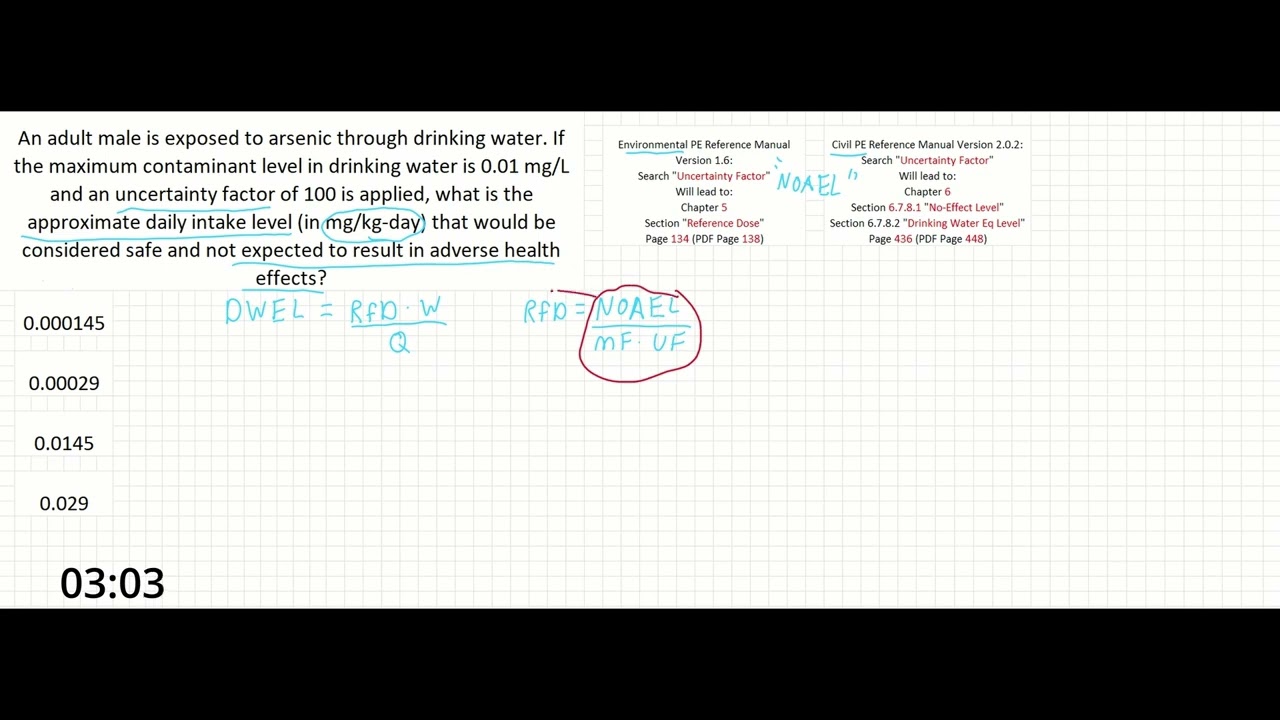 An adult male is exposed to arsenic through drinking water. If
the maximum contaminant level in drinking water is 0.01 mg/L
and an uncertainty factor of 100 is applied, what is the
approximate daily intake level (in mg/kg-day) that would be
considered safe and not expected to result in adverse health
effects?
Environmental PE Reference Manual
Version 1.6:
Search "Uncertainty Factor"
Will lead to:
Chapter 5
Section "Reference Dose"
Page 134 (PDF Page 138)
"NOAEL"
Civil PE Reference Manual Version 2.0.2:
Search "Uncertainty Factor"
Will lead to:
Chapter 6
Section 6.7.8.1 "No-Effect Level"
Section 6.7.8.2 "Drinking Water Eq Level"
Page 436 (PDF Page 448)
DWEL = RfD · W
Q
RfD = NOAEL
MF · UF
0.000145
0.00029
0.0145
0.029
03:03